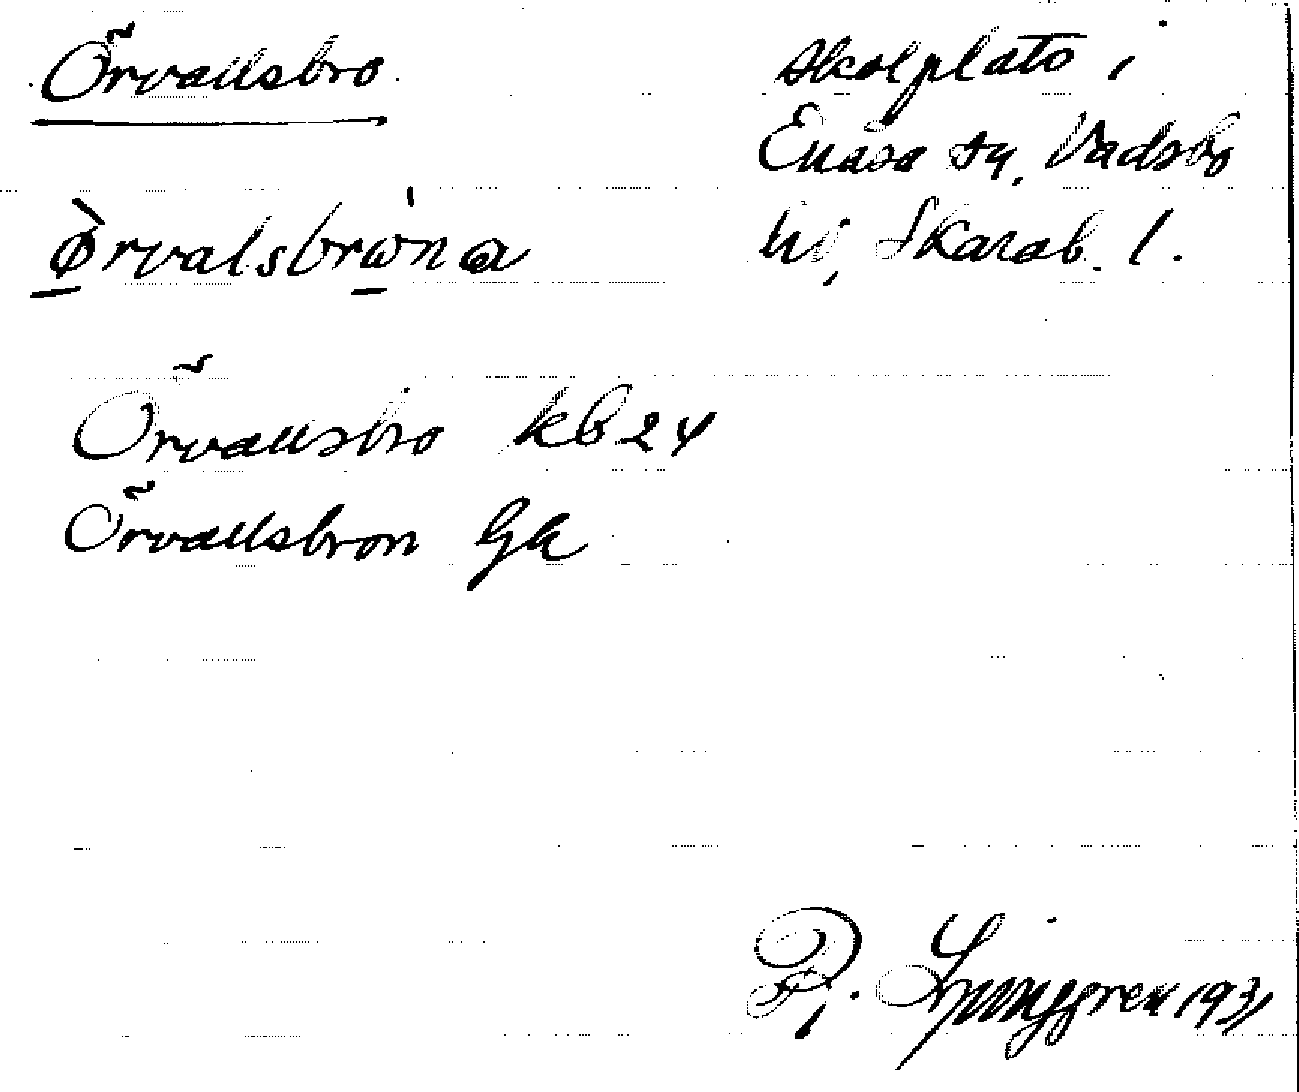 Örvallsbro
skolplats i
Enåsa sn, Vadsbo
hd, Skarab. l.
Örvallsbro kb 24
Örvallsbron Gk
R. Ljunggren 1931